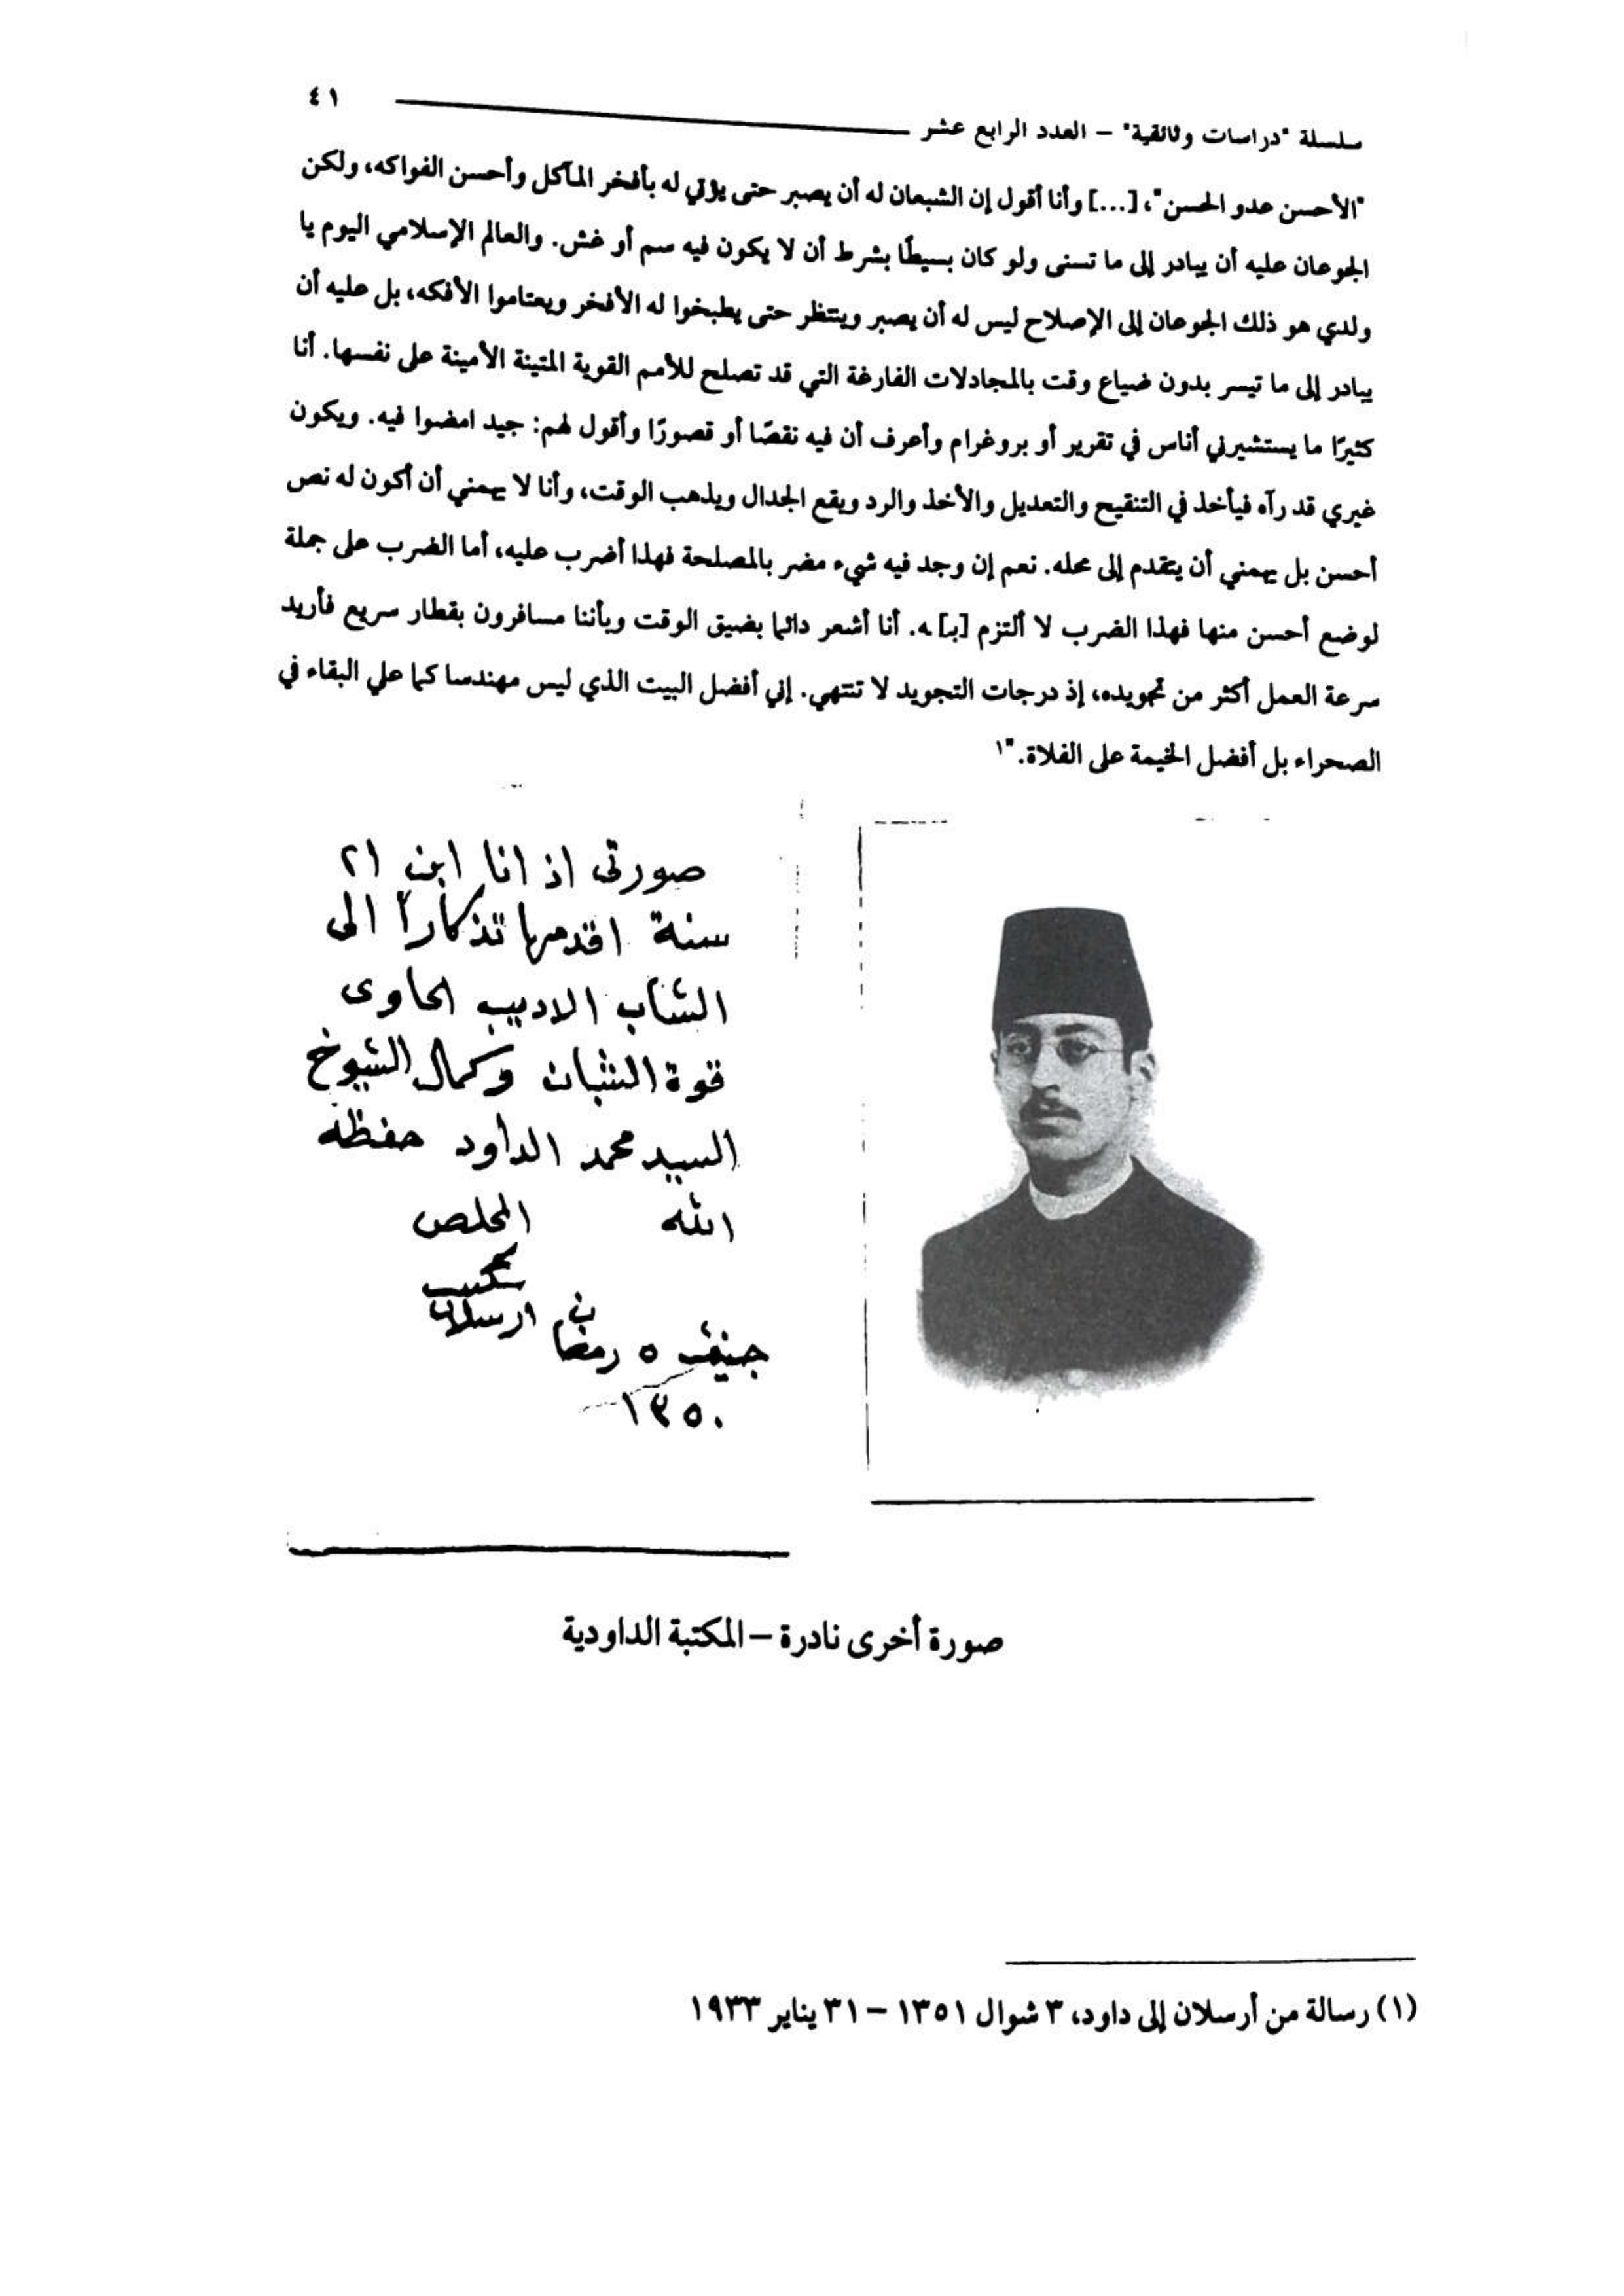 سلسلة "دراسات وثائقية" – العدد الرابع عشر ٤١
"الأحسن عدو الحسن"، [...] وأنا أقول إن الشبعان له أن يصبر حتى يؤتي له بأفخر المآكل وأحسن الفواكه، ولكن
الجوعان عليه أن يبادر إلى ما تسنى ولو كان بسيطًا بشرط أن لا يكون فيه سم أو غش. والعالم الإسلامي اليوم يا
ولدي هو ذلك الجوعان إلى الإصلاح ليس له أن يصبر وينتظر حتى يطبخوا له الأفخر ويعتاموا الأفكه، بل عليه أن
يبادر إلى ما تيسر بدون ضياع وقت بالمجادلات الفارغة التي قد تصلح للأمم القوية المتينة الأمينة على نفسها. أنا
كثيرًا ما يستشيرني أناس في تقرير أو بروغرام وأعرف أن فيه نقصًا أو قصورًا وأقول لهم: جيد امضوا فيه. ويكون
غيري قد رآه فيأخذ في التنقيح والتعديل والأخذ والرد ويقع الجدال ويذهب الوقت، وأنا لا يهمني أن أكون له نص
أحسن بل يهمني أن يتقدم إلى محله. نعم إن وجد فيه شيء مضر بالمصلحة فهذا أضرب عليه، أما الضرب على جملة
لوضع أحسن منها فهذا الضرب لا ألتزم [بـ] ـه. أنا أشعر دائما بضيق الوقت وبأننا مسافرون بقطار سريع فأريد
سرعة العمل أكثر من تجويده، إذ درجات التجويد لا تنتهي. إني أفضل البيت الذي ليس مهندسا كما علي البقاء في
الصحراء بل أفضل الخيمة على الفلاة."١
صورتى اذ انا ابن ٢١
سنة اقدمها تذكاراً الى
الشاب الاديب الحاوى
قوة الشبان وكمال الشيوخ
السيد محمد الداود حفظه
الله المخلص
شكيب
ارسلان
جنيف ٥ رمضان
١٣٥٠
صورة أخرى نادرة – المكتبة الداودية
(١) رسالة من أرسلان إلى داود، ٣ شوال ١٣٥١ – ٣١ يناير ١٩٣٣